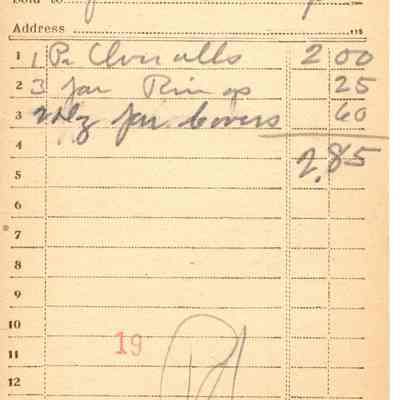 Sold to
Address
1 1 Pr Overalls 2 00
2 3 Jar Rings 25
3 2 Dz Jar Covers 60
4 2.85
5
6
7
8
9
10
11 19
12
Pd